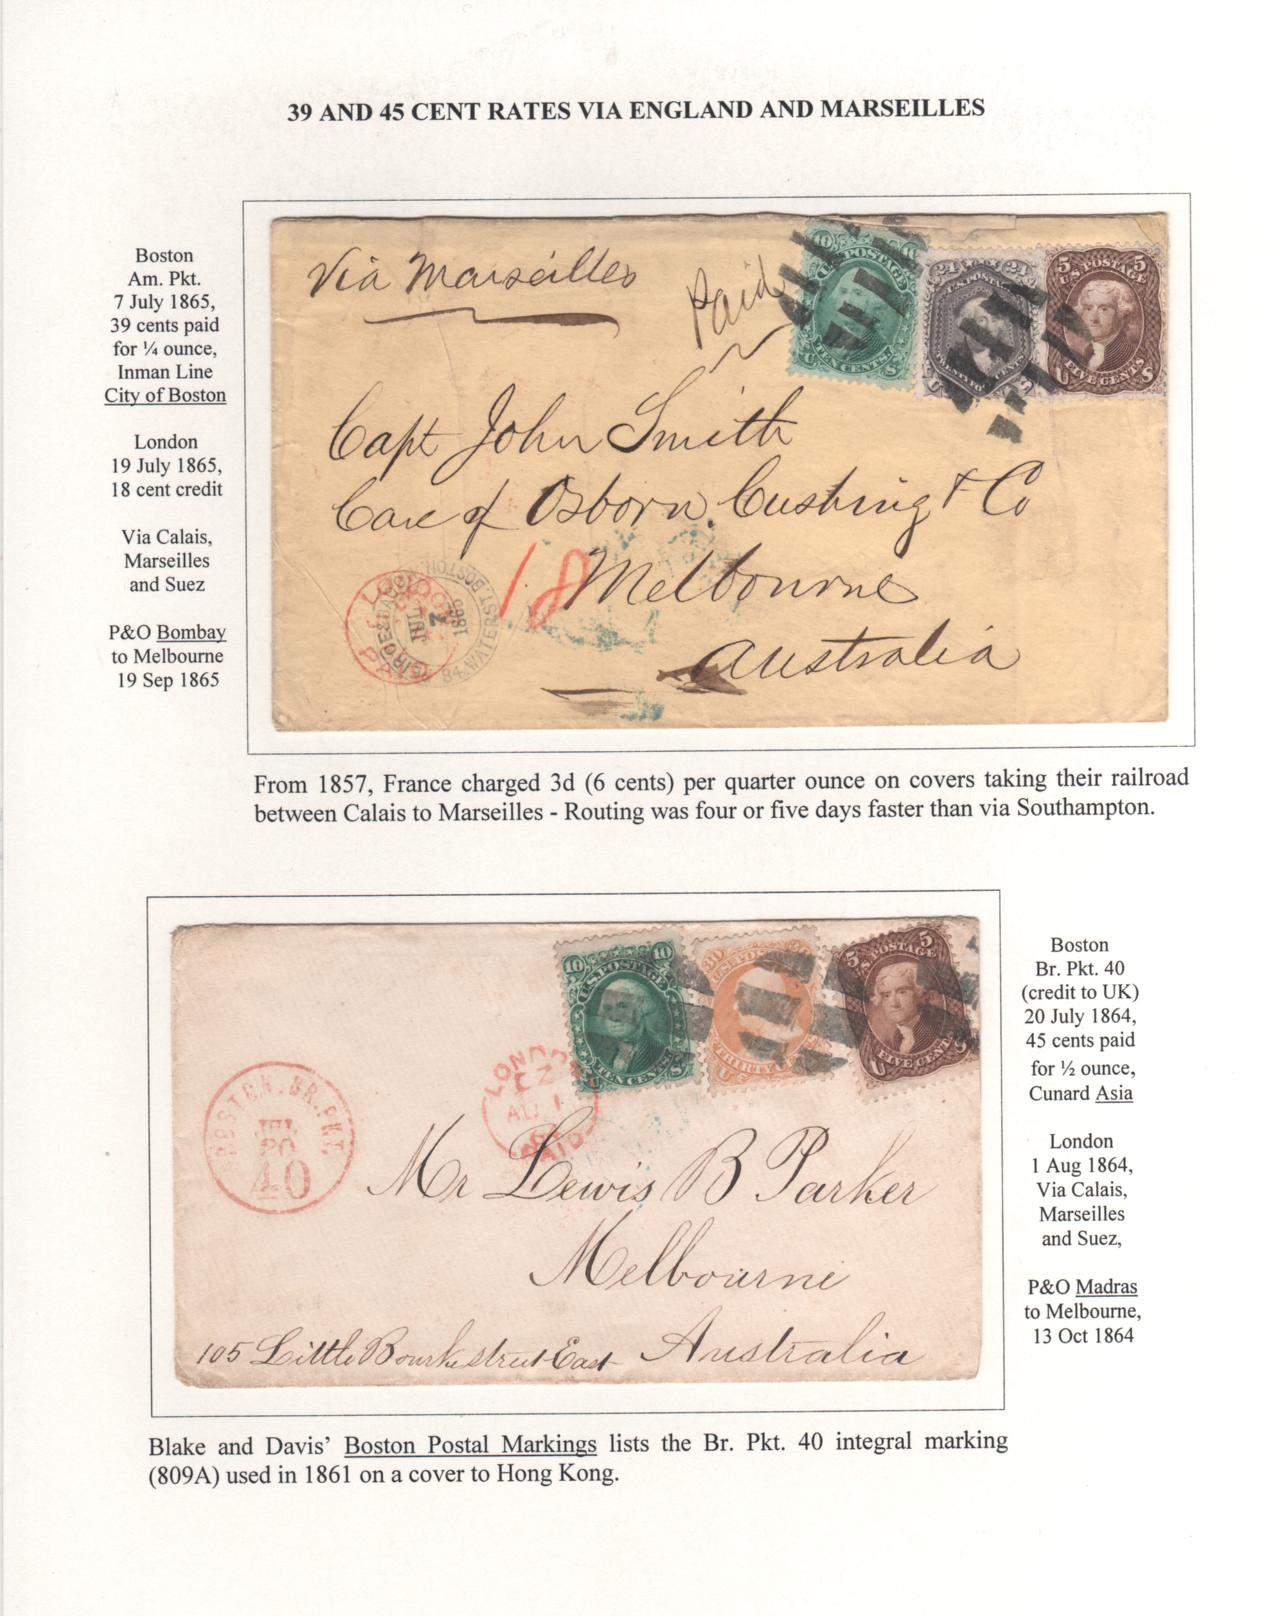 39 AND 45 CENT RATES VIA ENGLAND AND MARSEILLES
Boston
Am. Pkt.
7 July 1865,
39 cents paid
for ¼ ounce,
Inman Line
City of Boston
London
19 July 1865,
18 cent credit
Via Calais,
Marseilles
and Suez
P&O Bombay
to Melbourne
19 Sep 1865
Via Marseilles
Paid
10 10
U.S. POSTAGE
TEN CENTS
U S
24 24
U.S. POSTAGE
U
5 5
U.S. POSTAGE
FIVE CENTS
U S
Capt John Smith
Care of Osborn Cushing & Co
Melbourne
Australia
18
LONDON
PAID
7
JUL
1865
84 WATER ST. BOSTON
From 1857, France charged 3d (6 cents) per quarter ounce on covers taking their railroad
between Calais to Marseilles - Routing was four or five days faster than via Southampton.
10 10
U.S. POSTAGE
TEN CENTS
U S
30
THIRTY
U S
5 5
U.S. POSTAGE
FIVE CENTS
U
LONDON
EZ
AU 1
PAID
BOSTON. BR. PKT.
JUL
20
40
Mr Lewis B Parker
Melbourne
Australia
105 Little Bourke street East
Boston
Br. Pkt. 40
(credit to UK)
20 July 1864,
45 cents paid
for ½ ounce,
Cunard Asia
London
1 Aug 1864,
Via Calais,
Marseilles
and Suez,
P&O Madras
to Melbourne,
13 Oct 1864
Blake and Davis' Boston Postal Markings lists the Br. Pkt. 40 integral marking
(809A) used in 1861 on a cover to Hong Kong.